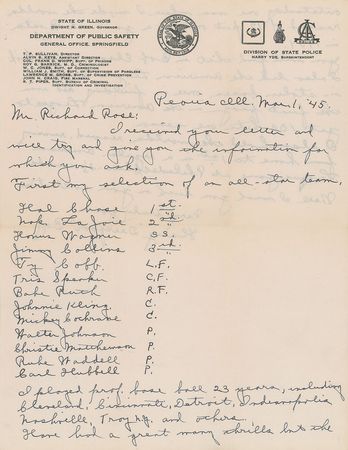 STATE OF ILLINOIS
DWIGHT H. GREEN, GOVERNOR
DEPARTMENT OF PUBLIC SAFETY
GENERAL OFFICE, SPRINGFIELD
T. P. SULLIVAN, DIRECTOR
ALVIN S. KEYS, ASSISTANT DIRECTOR
COL. FRANK D. WHIPP, SUPT. OF PRISONS
ROY G. BARRICK, M. D., CRIMINOLOGIST
W. C. JONES, SUPT. OF CORRECTION
WILLIAM J. SMITH, SUPT. OF SUPERVISION OF PAROLEES
LAWRENCE M. GROSS, SUPT. OF CRIME PREVENTION
JOHN H. CRAIG, FIRE MARSHAL
S. T. PIPER, SUPT. BUREAU OF CRIMINAL
IDENTIFICATION AND INVESTIGATION
DIVISION OF STATE POLICE
HARRY YDE, SUPERINTENDENT
Peoria Ill. Mar. 1, '45.
Mr Richard Rose:
I received your letter and
will try and give you the information for
which you ask.
First my selection of an all-star team,
Hal Chase 1st.
Nap. La Joie 2nd.
Honus Wagner S.S.
Jimmy Collins 3rd.
Ty Cobb L.F.
Tris Speaker C.F.
Babe Ruth R.F.
Johnnie Kling C.
Mickey Cochrane C.
Walter Johnson P.
Christie Matthewson P.
Rube Waddell P.
Carl Hubbell P.
I played prof. base ball 23 years, including
Cleveland, Cincinnati, Detroit, Indianapolis
Nashville, Troy N.Y. and others.
Have had a great many thrills but the